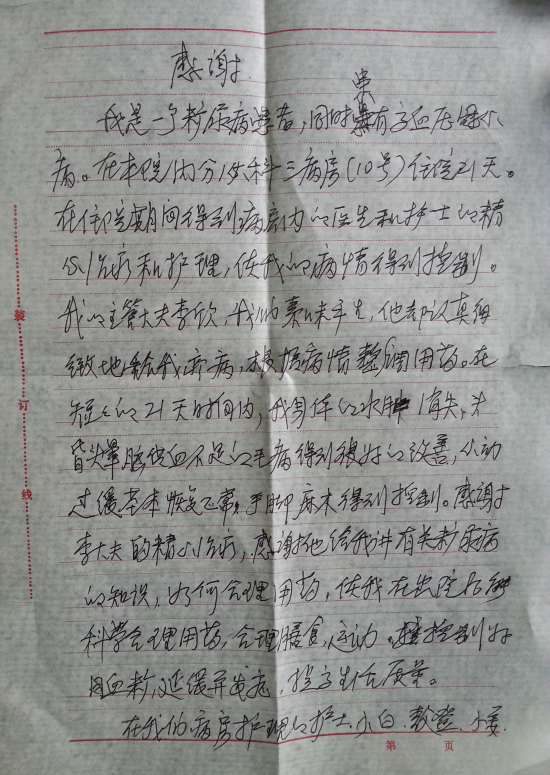 感谢
我是一个糖尿病患者，同时患有高血压冠心
病。在本院内分泌科三病房(10号)住院21天。
在住院期间得到病房内的医生和护士的精
心治疗和护理，使我的病情得到控制。
我的主管大夫李欣，我的素昧平生，他却认真细
致地给我疗病，根据病情整调用药。在
短短的21天时间内，我身体的水肿消失，头
昏头晕脑供血不足的毛病得到很好的改善，心动
过缓基本恢复正常，手脚麻木得到控制。感谢
李大夫的精心治疗，感谢他给我讲有关糖尿病
的知识，如何合理用药，使我在出院后能
科学合理用药，合理膳食，运动。控制好
血糖，延缓并发症，提高生活质量。
在我们病房护理的护士，小白、小姜
装
订
线
第 页